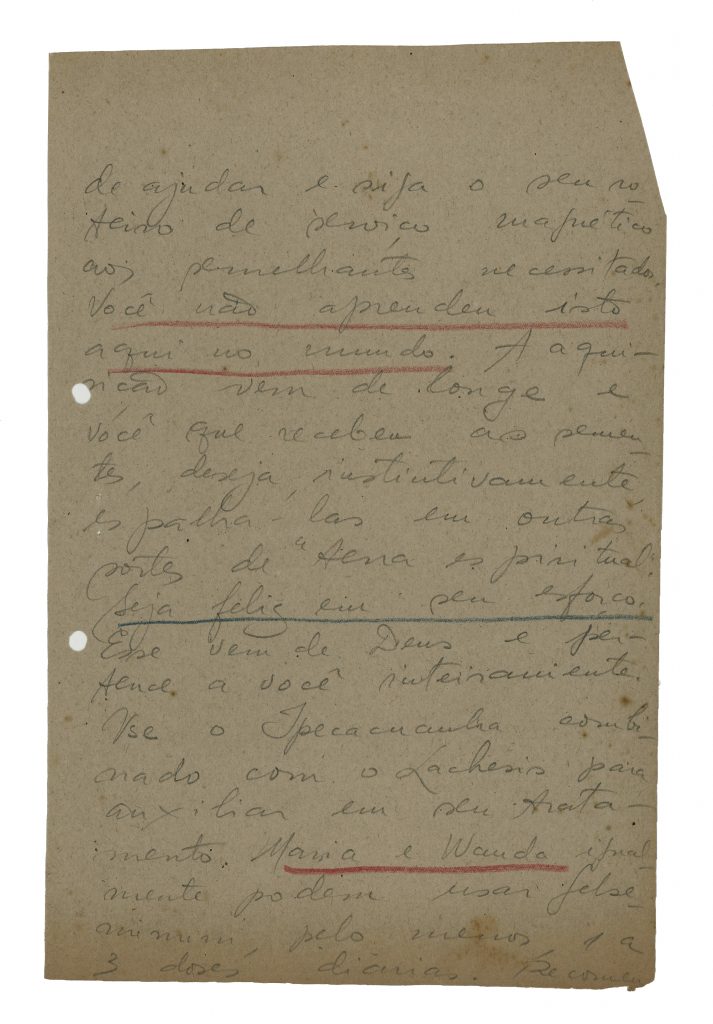 de ajudar e siga o seu ro-
teiro de serviço magnético
aos semelhantes necessitados.
Você não aprendeu isto
aqui no mundo. A aqui-
sicão vem de longe e
você que recebeu as semen-
tes, deseja, instintivamente,
espalha-las em outras
sortes de "terra espiritual".
Seja feliz em seu esforço.
Esse vem de Deus e per-
tence a você inteiramente.
Use o Ipecacuanha combi-
nado com o Lachesis para
auxiliar em seu trata-
mento. Maria e Wanda igual-
mente podem usar Gelse-
minum, pelo menos, 1 a
3 doses diárias. Recomen